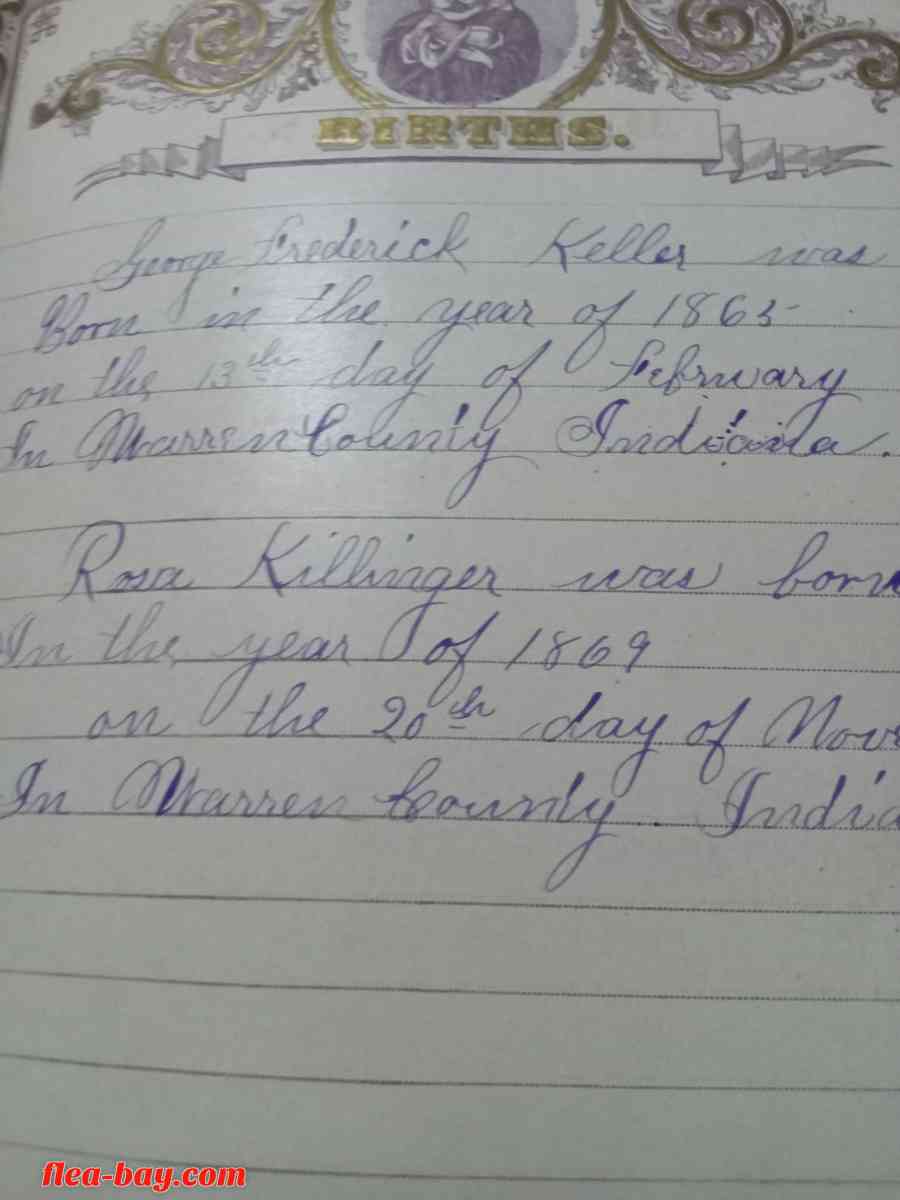 BIRTHS.
George Frederick Keller was
Born in the year of 1863
on the 13th day of February
In Warren County Indiana.
Rosa Killinger was born
In the year of 1869
on the 20th day of Nov
In Warren County. India
flea-bay.com